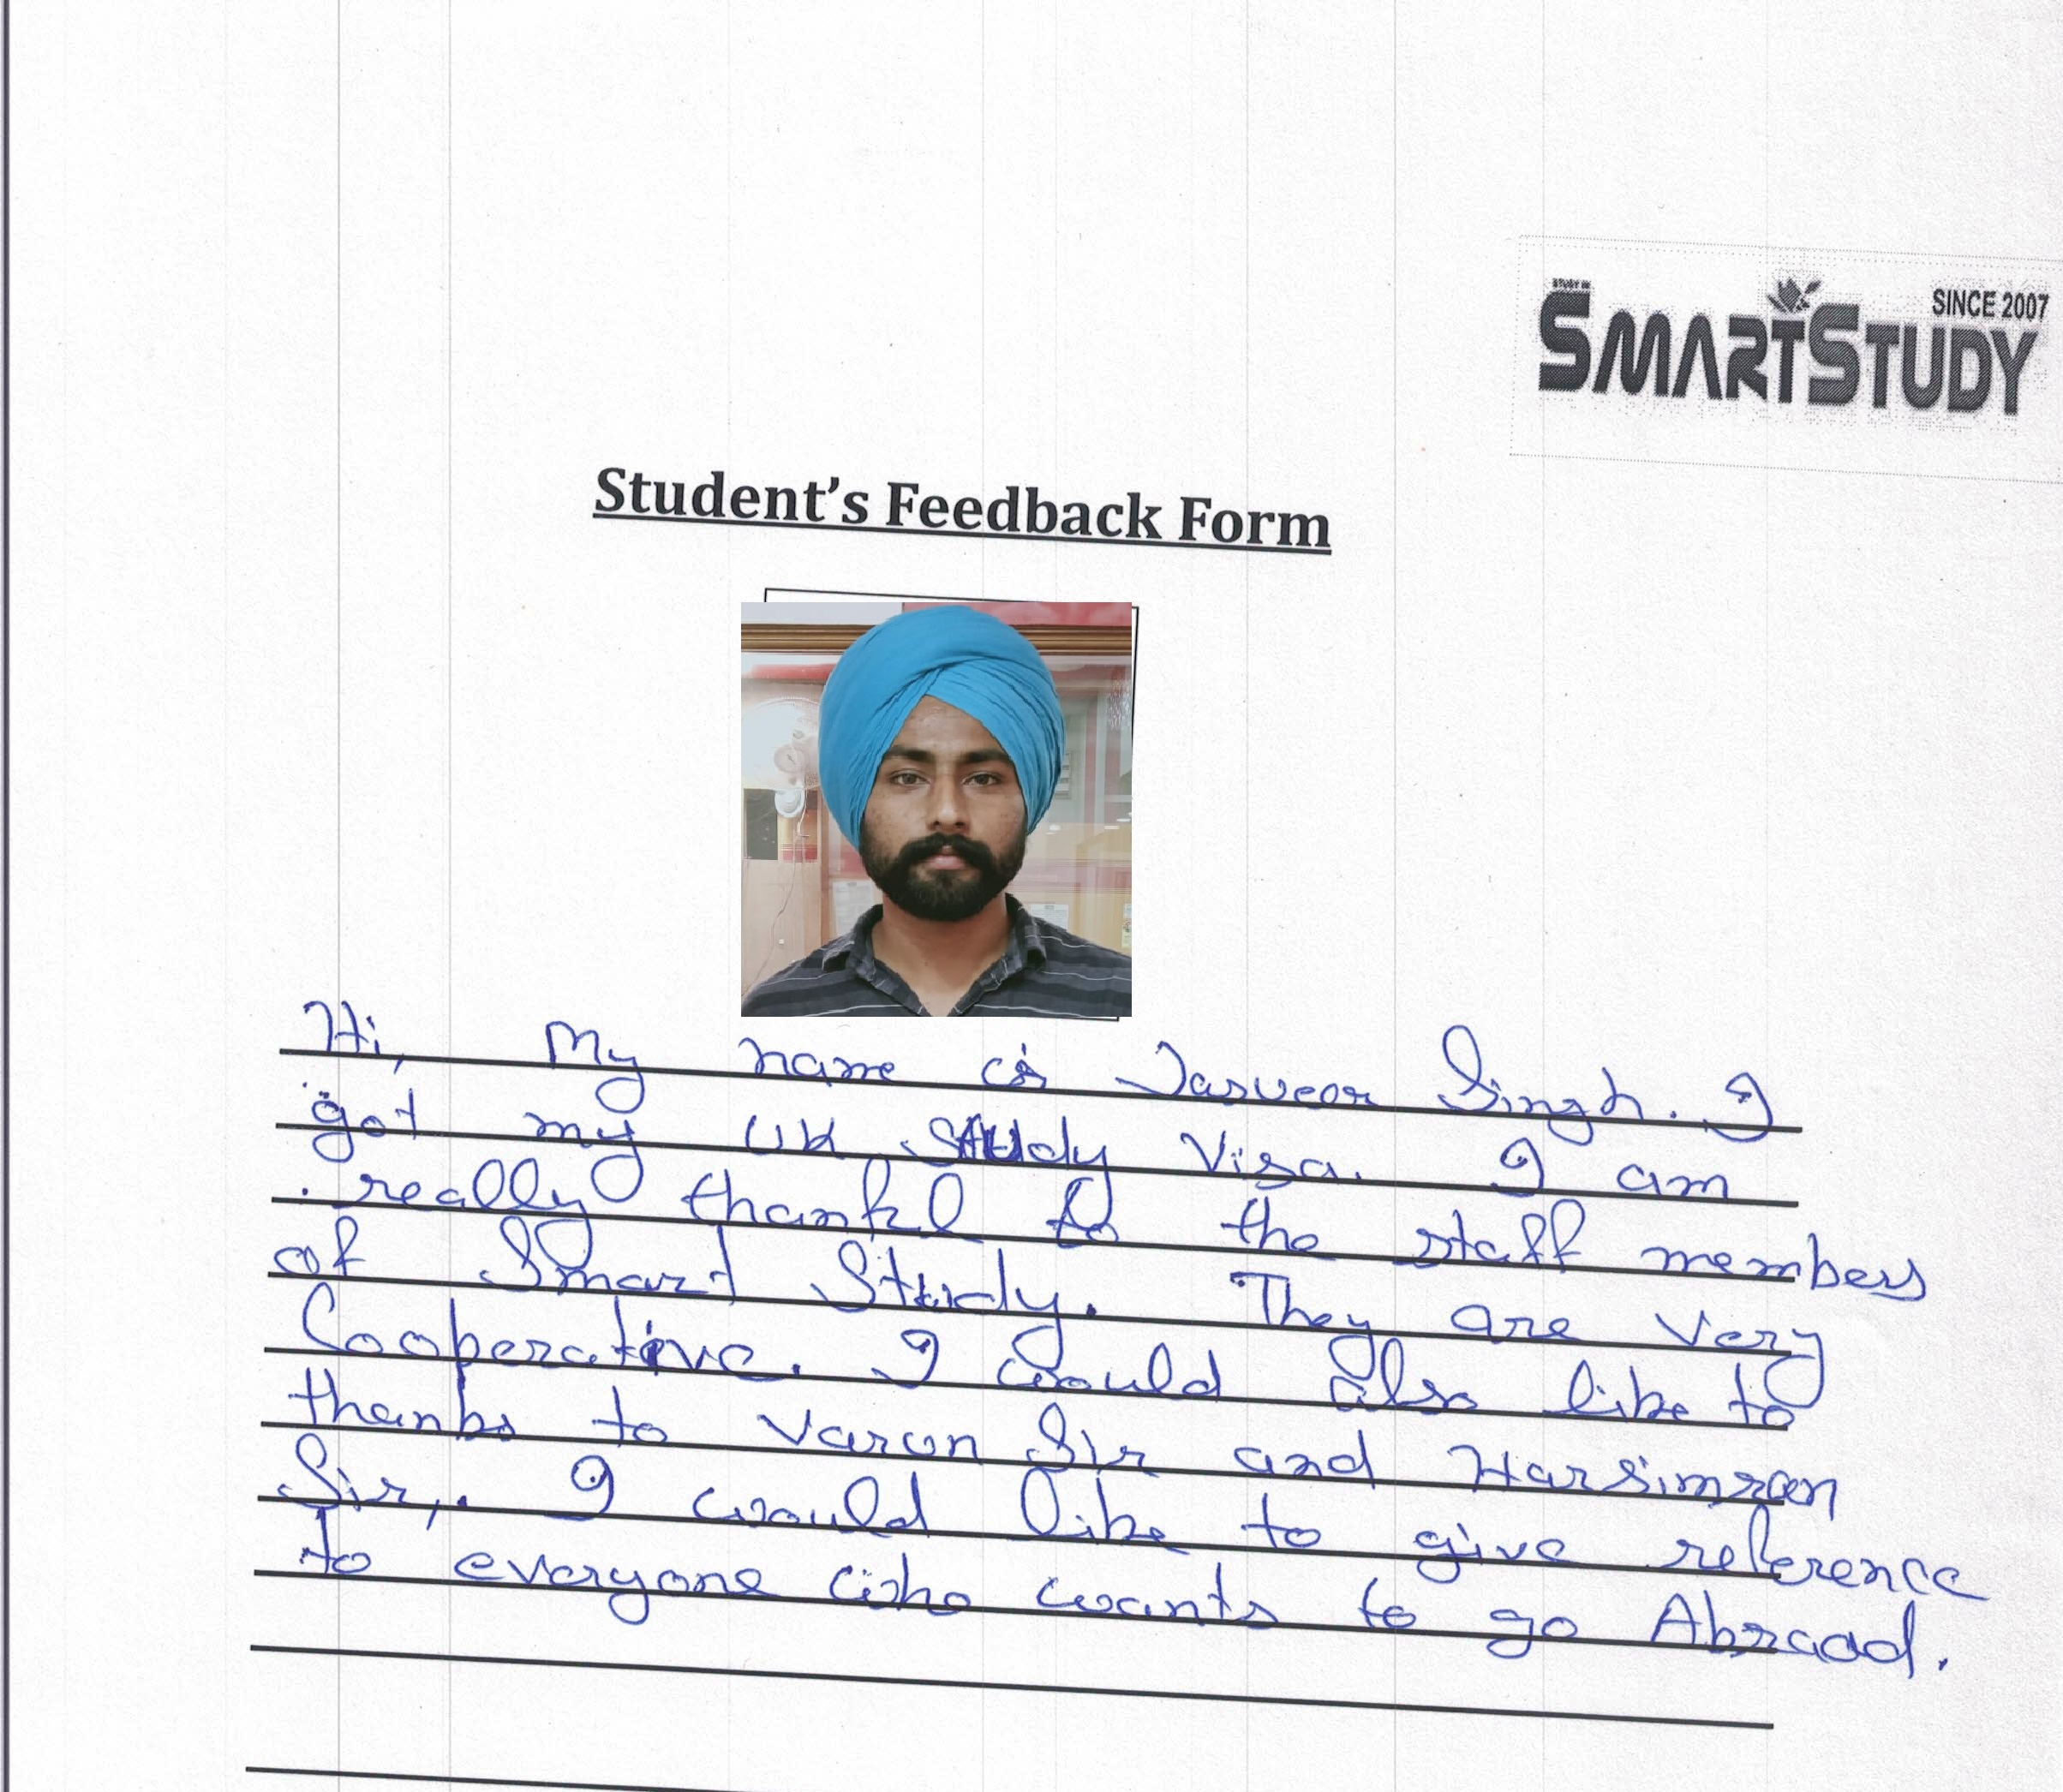 STUDY IN
SMARTSTUDY
SINCE 2007
Student's Feedback Form
Hi, My name is Jasveer Singh. I
got my UK Study Visa. I am
really thankl to the staff members
of Smart Study. They are very
Cooperative. I would also like to
thanks to Varun Sir and Harsimran
Sir,. I would like to give reference
to everyone who wants to go Abroad.